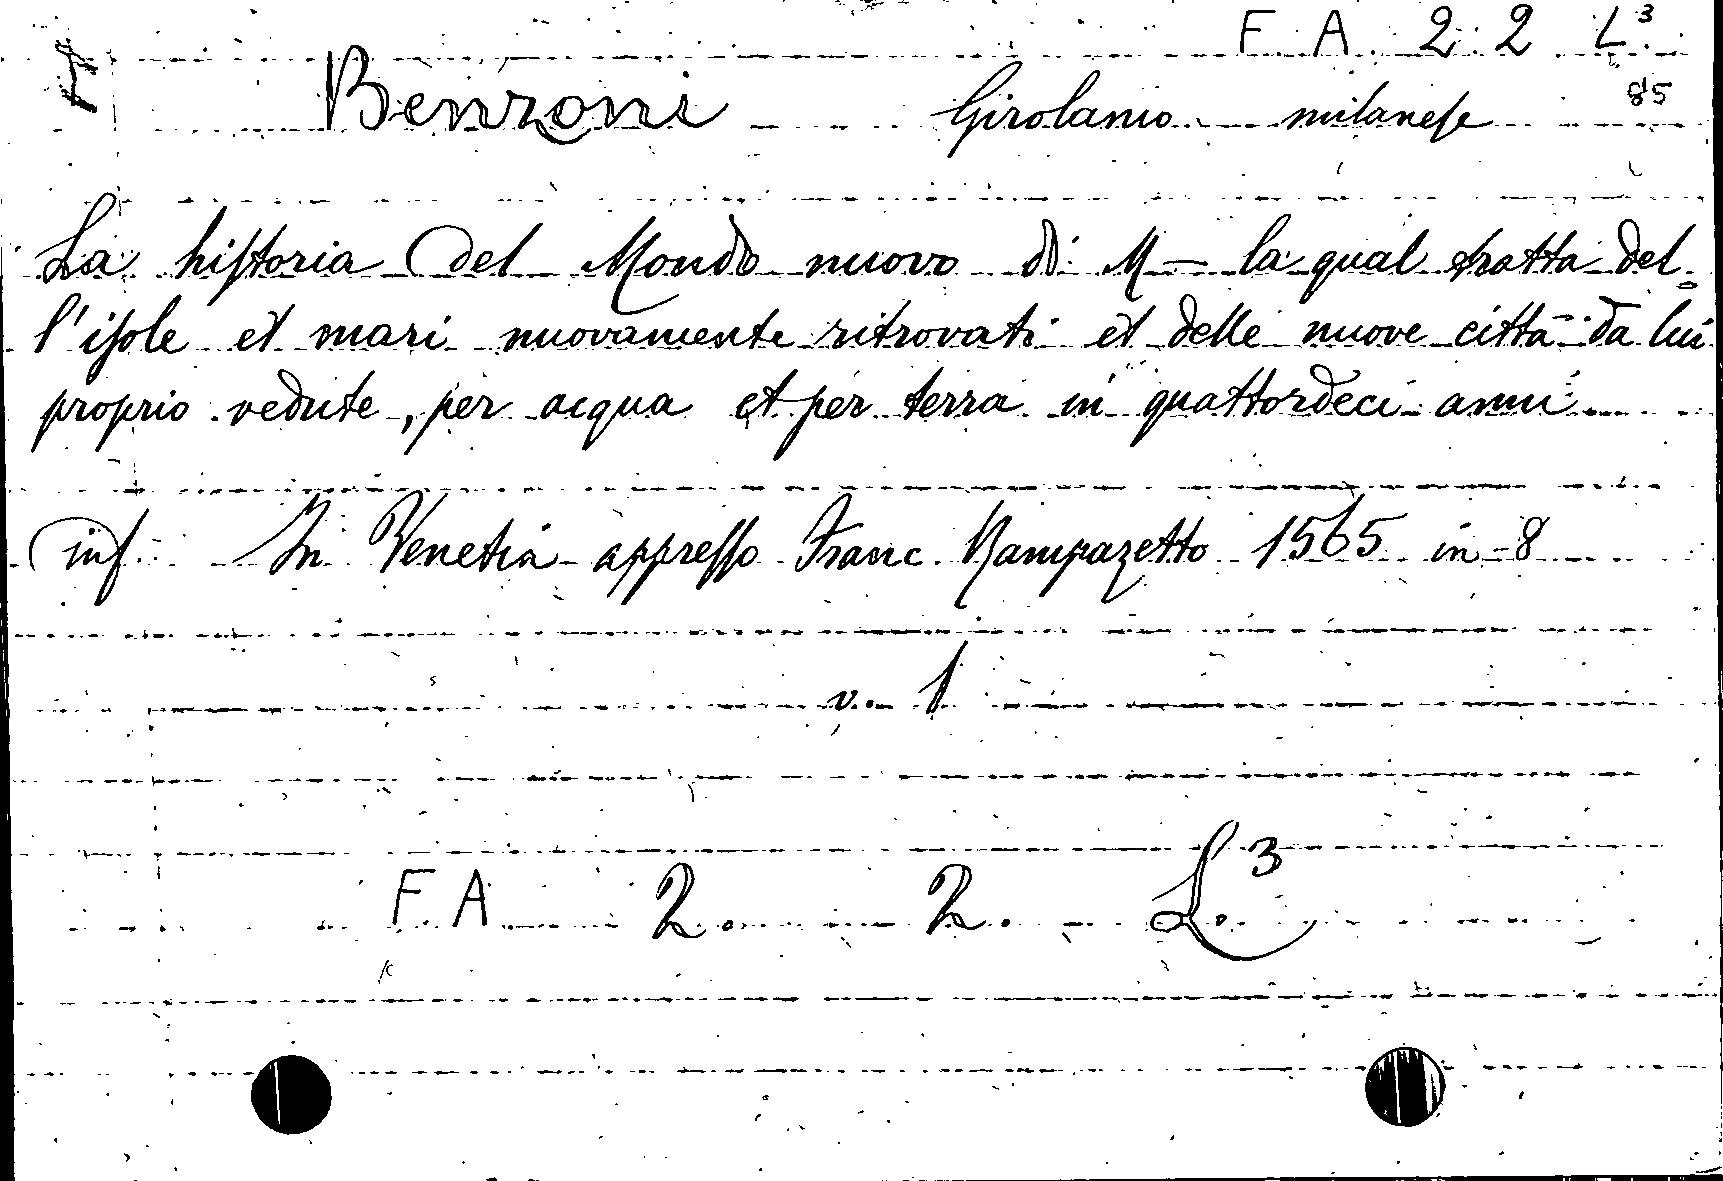 F. A. 2. 2 L.³
85
Benzoni Girolamo milaneſe
La hiſtoria del Mondo nuovo di M — la qual tratta del-
l'iſole et mari nuovamente ritrovati et delle nuove città da lui
proprio vedute, per acqua et per terra in quattordeci anni
inf. In Venetia appreſſo Franc. Rampazetto 1565 in 8
v. 1
F. A 2. 2. L.³